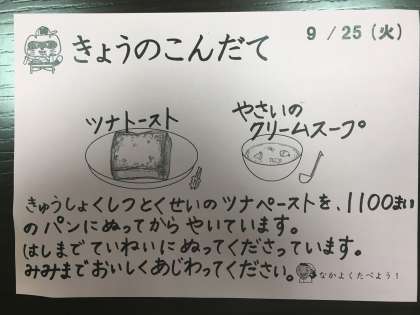 きょうのこんだて
9 / 25 (火)
ツナトースト
やさいの
クリームスープ
きゅうしょくしつとくせいの ツナペーストを、1100まい
の パンにぬってから やいています。
はしまで ていねいに ぬってくださっています。
みみまで おいしく あじわってください。
なかよくたべよう！